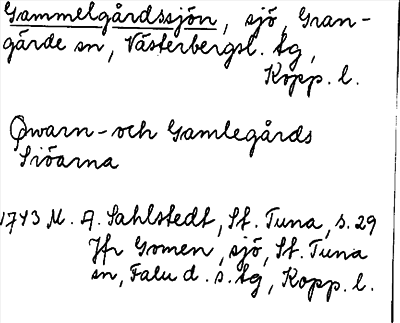 Gammelgårdssjön, sjö, Gran-
gärde sn, Västerbergsl. tg,
Kopp. l.
Qwarn- och Gamlegårds
Siöarna
1743 M. A. Sahlstedt, St. Tuna, s. 29
Jfr Gomen, sjö, St. Tuna
sn, Falu d. s. tg, Kopp. l.